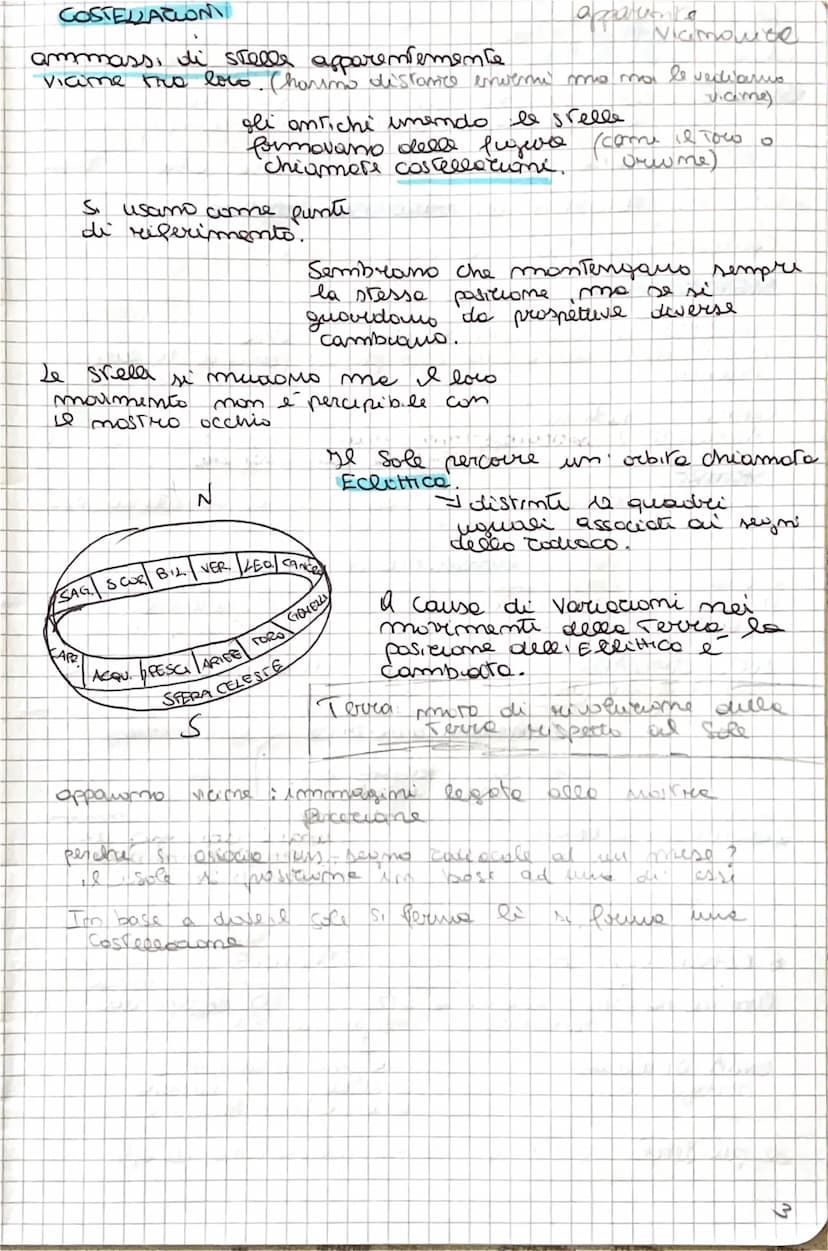 COSTELLAZIONI
apparente
vicinanza
ammassi di stelle apparentemente
vicine tra loro. (hanno distanze enormi ma noi le vediamo
vicine)
gli antichi unendo le stelle
formavano delle figure (come il Toro o
Orione)
chiamate costellazioni.
Si usano come punti
di riferimento.
Sembrano che mantengano sempre
la stessa posizione, ma se si
guardano da prospetive diverse
cambiano.
Le stelle si muovono ma il loro
movimento non è percepibile con
il nostro occhio
Il Sole percorre un'orbita chiamata
Eclittica.
distinti 12 quadri
uguali associati ai segni
dello zodiaco.
N
SAG. SCOR. BIL. VER. LEO. CANCRO
GEMELLI
CAPR. ACQU. PESCI ARIETE TORO
SFERA CELESTE
S
A cause di variazioni nei
movimenti della Terra la
posizione dell'Ellittica è
cambiata.
Terra: moto di rivoluzione della
Terra rispetto al Sole
appaiono vicine: immagini legate alla nostra
perché si associa un segno zodiacale ad un mese?
il sole si posiziona in base ad uno di essi
In base a dove il sole si ferma lì si forma una
costellazione
3